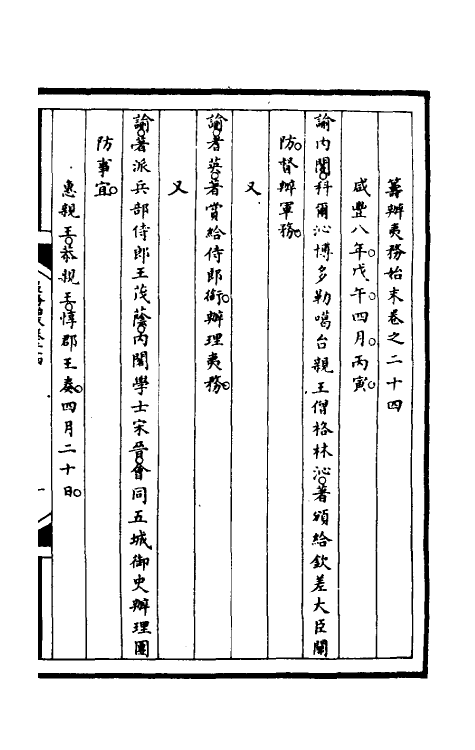 籌辦夷務始末卷之二十四
咸豐八年。戊午。四月。丙寅。
諭內閣。科爾沁博多勒噶台親王僧格林沁。著頒給欽差大臣關
防。督辦軍務。
又
諭。耆英。著賞給侍郎銜。辦理夷務。
又
諭。著派兵部侍郎王茂蔭。內閣學士宋晉。會同五城御史辦理團
防事宜。
惠親王。恭親王。惇郡王奏。四月二十日。